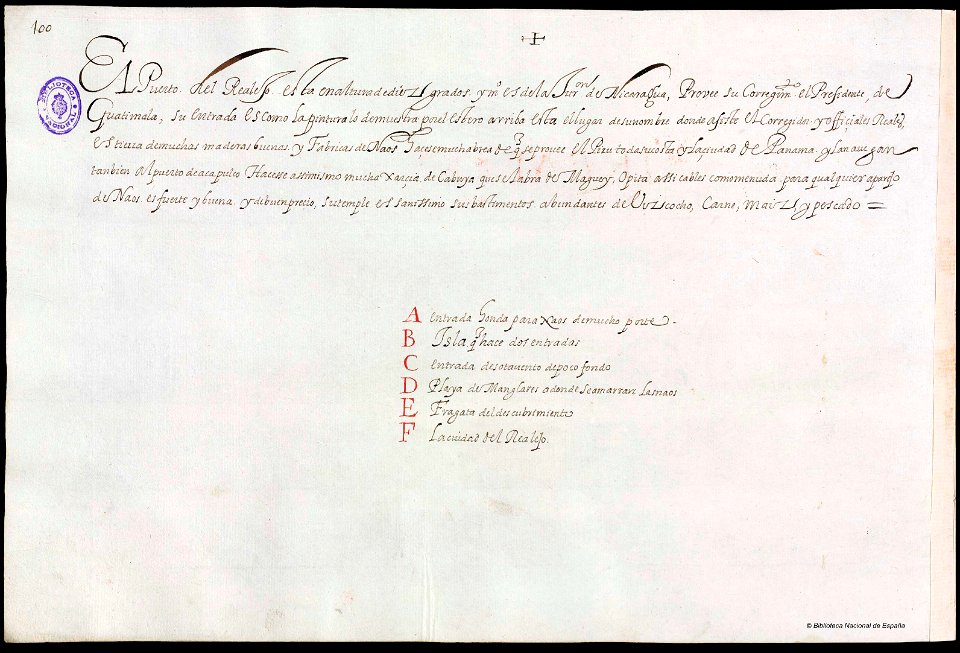 100
El Puerto del Realejo esta en altura de diez grados, y m̊ es de la Jurōn de Nicaragua, Provee su Corregimº el Presidente, de
Guatimala, su entrada es como la pintura lo demuestra por el estero arriba esta el lugar de su nombre donde asiste el Corregidor y officiales Reales,
es tierra de muchas maderas buenas y Fabricas de Naos hacese mucha brea de q̃ se provee el Piru toda su costa y la ciudad de Panama y la navegan
tanbien al puerto de acapulco Hacese assimismo mucha xarcia de Cabuya que se labra de Maguey, O pita assi cables como menuda para qualquier aparejo
de Naos. es fuerte y buena y de buen precio, su temple es sanissimo sus bastimentos abundantes de Vizcocho, Carne, maiz y pescado
A entrada honda para Naos de mucho porte
B Isla q̃ hace dos entradas
C entrada de sotavento de poco fondo
D Playa de Manglares adonde se amarran las naos
E Fragata del descubrimiento
F La ciudad del Realejo.
© Biblioteca Nacional de España